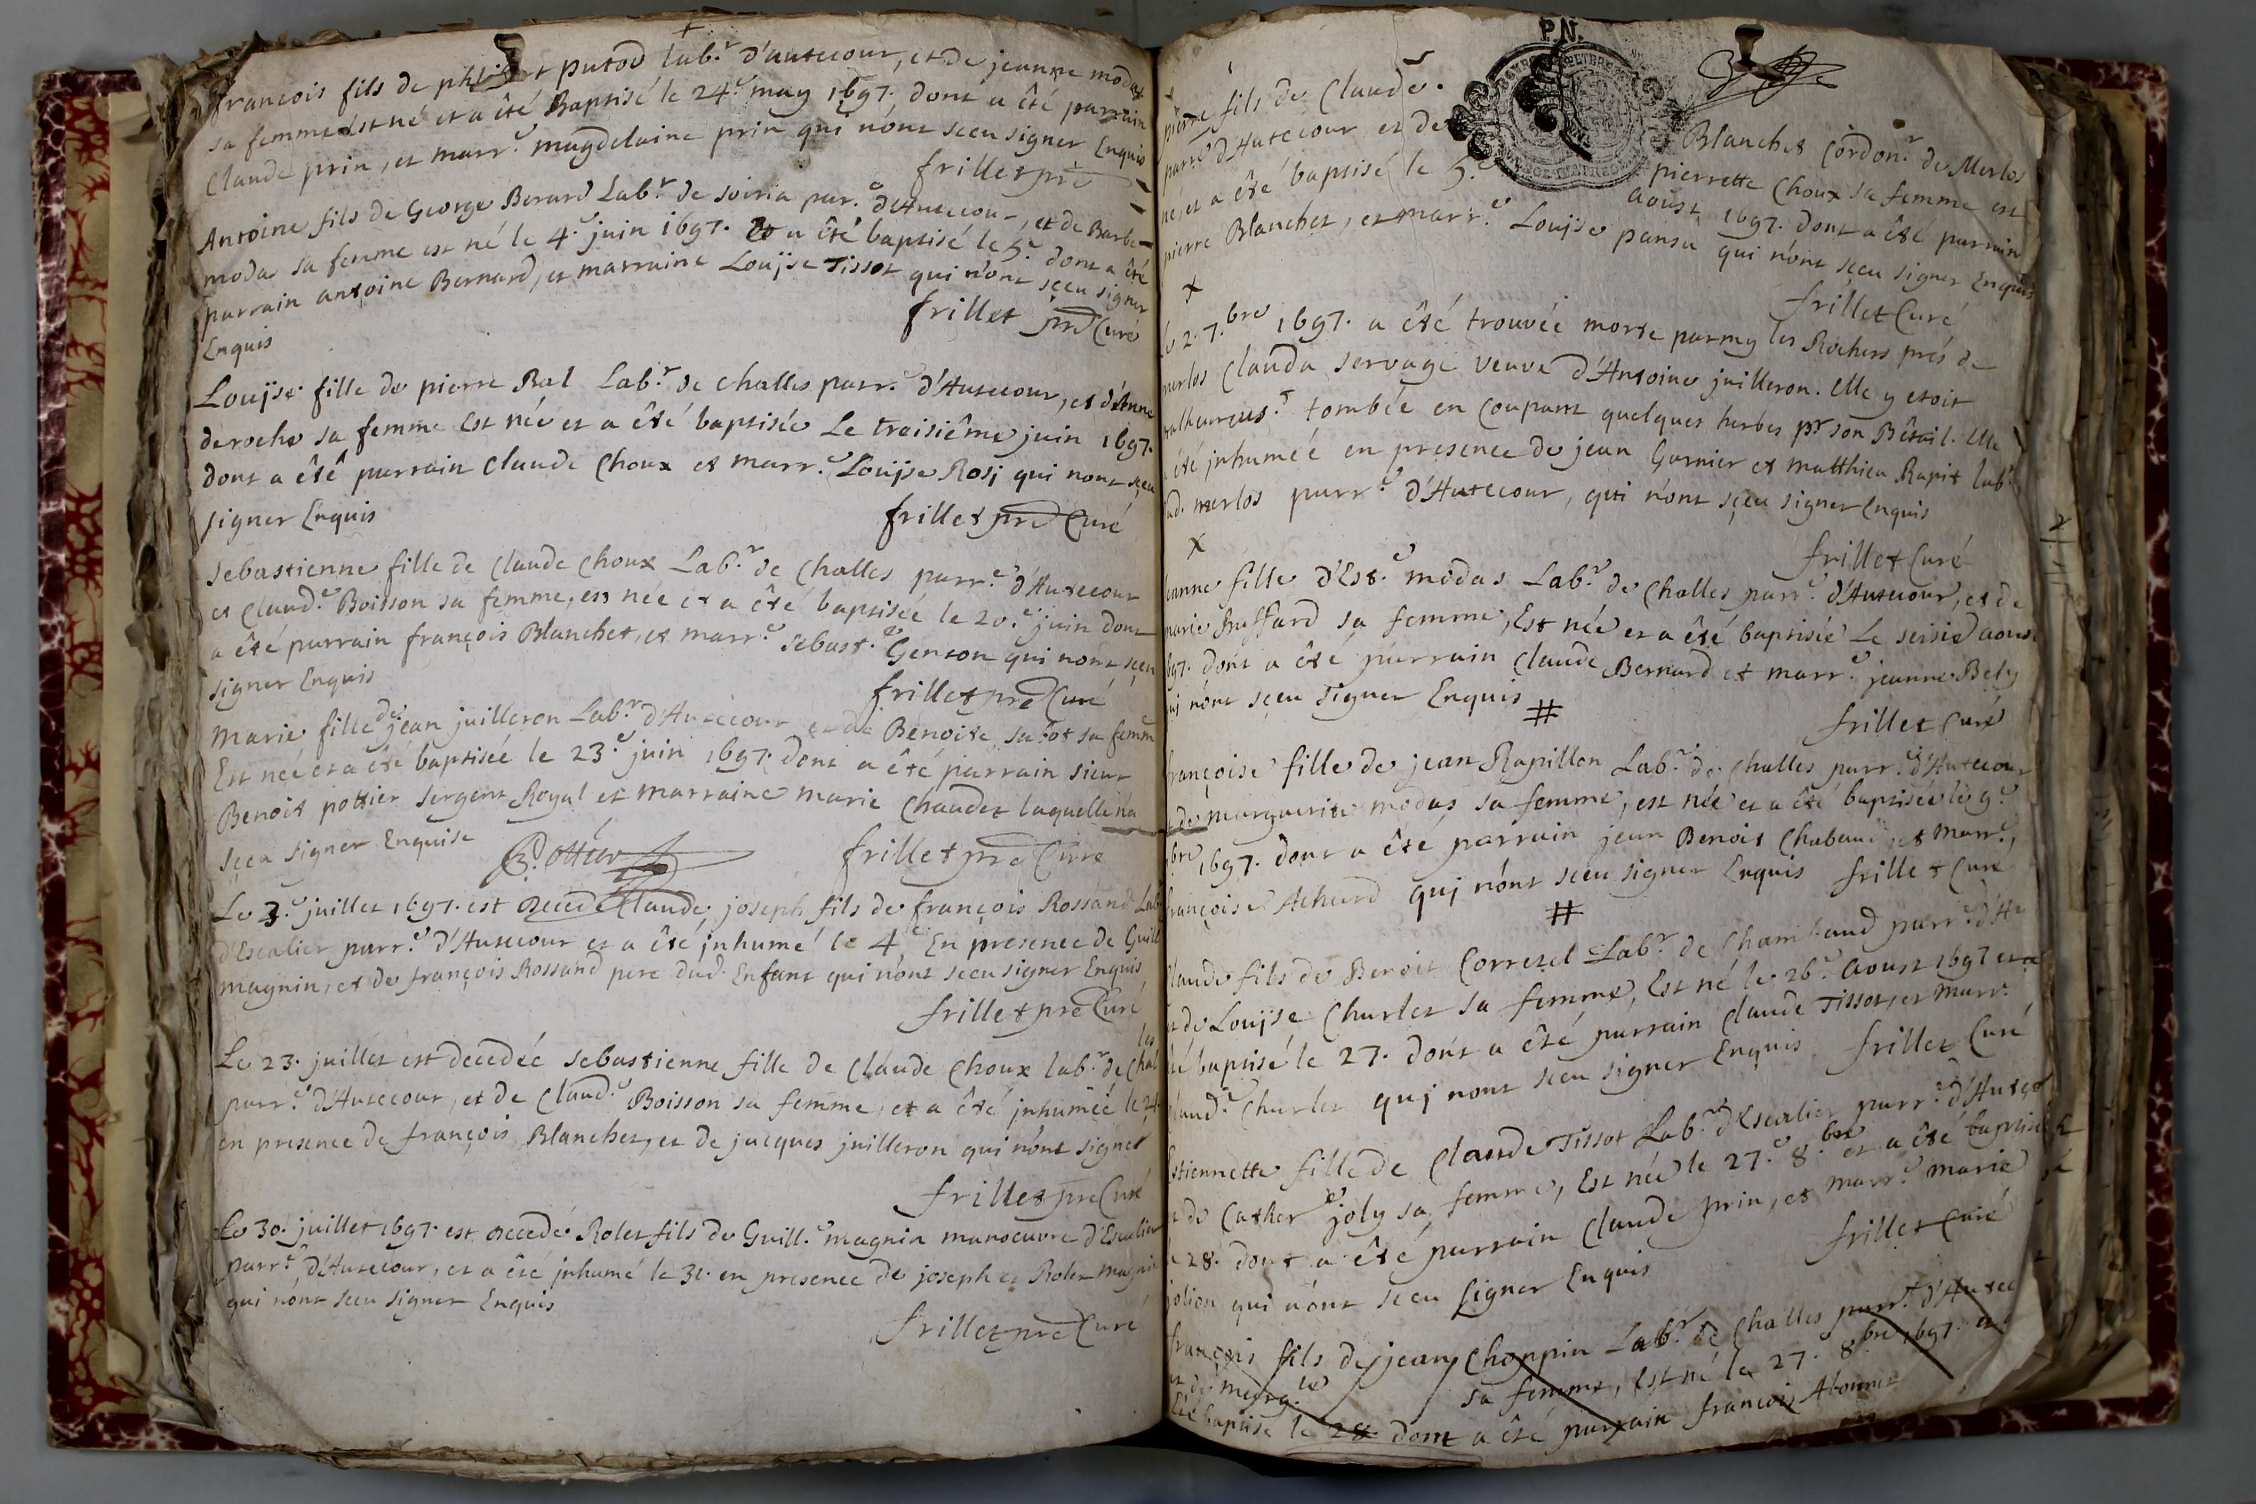 francois fils de putod lab.r d'autecour, et de jeanne modas
sa femme est né et a êté Baptisé le 24.e may 1697. dont a êté parrain
Claude prin, et marr.e magdelaine prin qui n'ont sceu signer Enquis
frillet pre
Antoine fils de George Berard Lab.r de soiria par.e d'Autecour, et de Barbe
moda sa femme est né le 4.e juin 1697. Et a êté baptisé le 5.e dont a êté
parrain antoine Bernard, et marraine Louise Tissot qui n'ont sceu signer
Enquis
frillet pre Curé
Louise fille de pierre Bal Lab.r de challes parr.e d'Autecour, et d'Anne
deroche sa femme Est née et a êté baptisée Le troisiême juin 1697.
dont a êtê parrain Claude Choux et marr.e Louise Rosj qui nont sçeu
signer Enquis
frillet pre Curé
Sebastienne fille de Claude Choux Lab.r de Challes parr.e d'Autecour
et Claud.e Boisson sa femme, est née et a êté baptisée le 20.e juin dont
a êté parrain françois Blanchet, et marr.e sebast.e Genton qui nont sçeu
signer Enquis
frillet pre Curé
Marie fille de jean juilleron Lab.r d'Autecour et de Benoite sa femme
Est née et a êté baptisée le 23.e juin 1697. dont a êté parrain sieur
Benoit pottier sergent Royal et marraine marie Chaudet laquelle n'a
sçeu signer Enquise
B. Pottier
frillet pre Curé
Le 3.e juillet 1697. est decedé Claude joseph fils de françois Rossand Lab.r
d'Escalier parr.e d'Autecour et a êté jnhumé le 4.e En presence de Guill
magnin, et de françois Rossand pere dud. Enfant qui n'ont sceu signer Enquis
frillet pre Curé
Le 23. juillet est decedée sebastienne fille de Claude Choux lab.r de Chal
les
parr.e d'Autecour, et de Claud.e Boisson sa femme, et a êté jnhumée le 24
en presence de françois Blanchet, et de jacques juilleron qui n'ont signer
frillet pre Curé
Le 30. juillet 1697. est decedé Rolet fils de Guill.e magnin manoeuvre d'Escalier
parr.e d'Autecour, et a êté jnhumé le 31. en presence de joseph et Rolet magnin
qui n'ont sceu signer Enquis
frillet pre Curé
P.N.
pierre fils de Claude Blanchet Cordon.r de Merlos
parr.e d'Autecour et de pierrette Choux sa femme est
né, et a êté baptisé le 5.e aoust 1697. dont a êté parrain
pierre Blanchet, et marr.e Louise pansu qui n'ont sceu signer Enquis
frillet Curé
x
le 2. 7.bre 1697. a êté trouvée morte parmy les Rochers prés de
merlos Clauda servage veuve d'Antoine juilleron. Elle y etoit
malheureus.t tombée en Coupant quelques herbes pr son Bêtail. Elle
êté jnhumée en presence de jean Garnier et matthieu Rapit lab.rs
dud. merlos parr.e d'Autecour, qui n'ont sçeu signer Enquis
frillet Curé
x
jeanne fille d'Est.e modas Lab.r de Challes parr.e d'Autecour, et de
marie sa femme, Est née et a êté baptisée Le seisie aoust
1697. dont a êté parrain Claude Bernard et marr.e jeanne Bely
qui n'ont sçeu signer Enquis
#
frillet Curé
françoise fille de jean Rapillon Lab.r de Challes parr.e d'Autecour
et de marguerite modas sa femme, est née et a êté baptisée le 9.e
bre 1697. dont a êté parrain jean Benoit Chabaud, et marr.e
françoise Achard quj n'ont sceu signer Enquis frillet Curé
#
Claude fils de Benoit Corretel Lab.r de Chambaud parr.e d'Au
et de Louise Charlet sa femme, Est né le 26.e Aoust 1697 et a
êté baptisé le 27. dont a êté parrain Claude Tissot, et marr.e
Claud.e Charlet quj nont sceu signer Enquis frillet Curé
Estiennette fille de Claude Tissot Lab.r d'Escalier parr.e d'Autecor
et de Cather.e joly sa femme, Est née le 27.e 8.bre et a êté baptisée
le 28. dont a êté parrain Claude prin, et marr.e marie
jolion qui n'ont sceu signer Enquis
frillet Curé
françois fils de jean Choppin Lab.r de Challes parr.e d'Autec
et de marg.te sa femme, Est né le 27. 8.bre 1697. et
êté baptisé le 28. dont a êté parrain françois